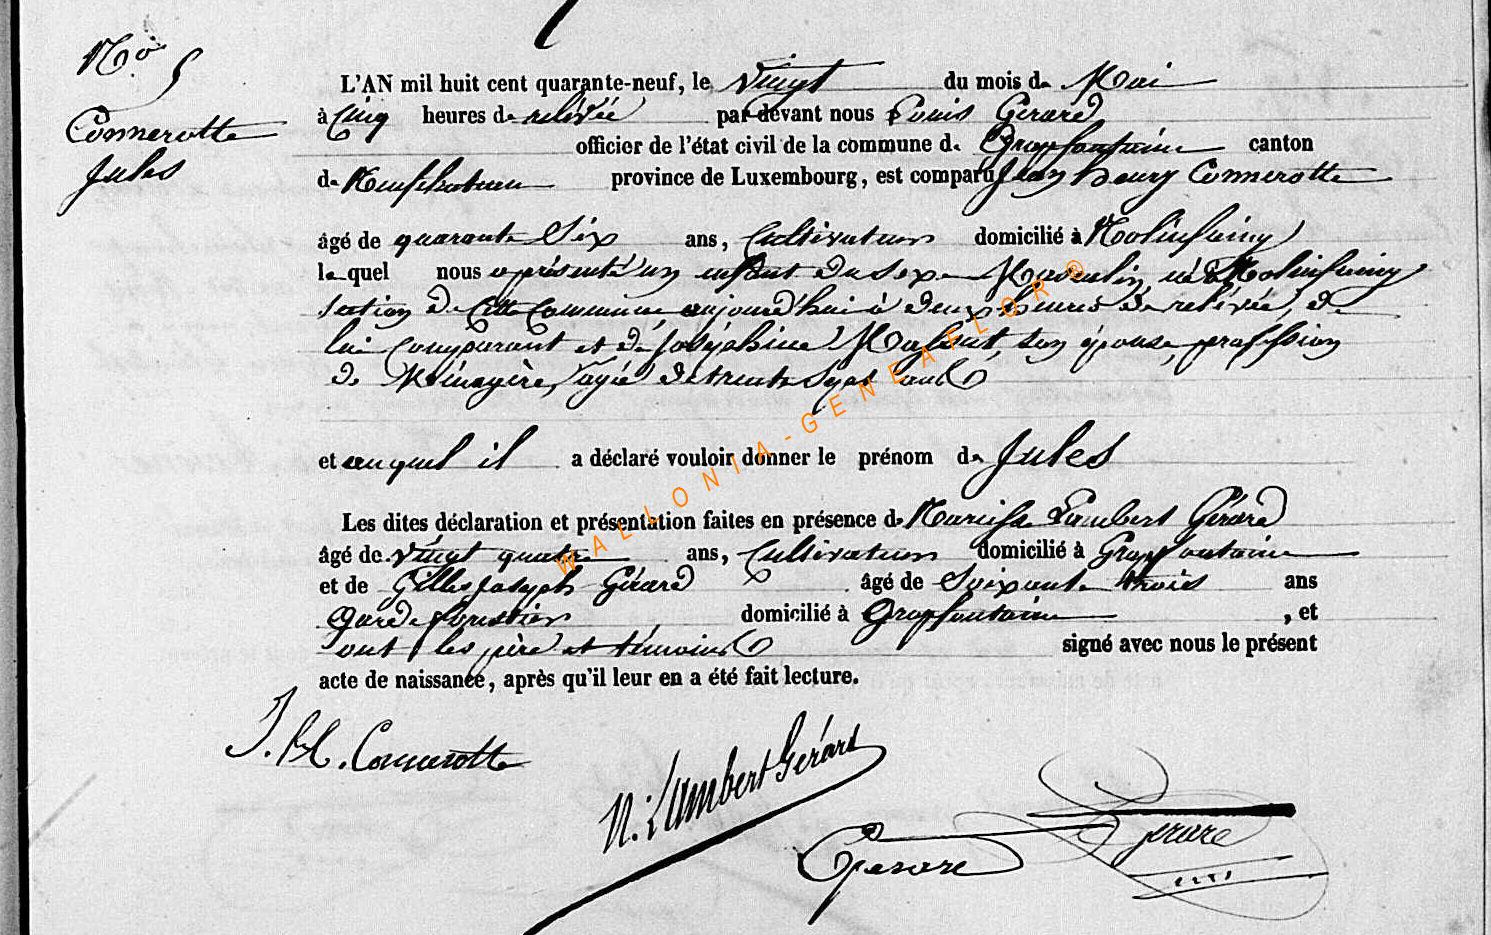 No 5
Connerotte
Jules
L'AN mil huit cent quarante-neuf, le vingt du mois de Mai
à Cinq heures de relévée par-devant nous Louis Gerard
officier de l'état civil de la commune de Grapfontaine canton
de Neufchateau province de Luxembourg, est comparu Jean henry Connerotte
âgé de quarante Six ans, Cultivateur domicilié à Molinfaing
lequel nous a présenté un enfant du sexe Masculin, né à Molinfaing
section de Cette Commune, aujourd'hui à deux heures de relévée, de
lui Comparant et de Joséphine son épouse, profession
de Ménagère, agée de trente Sept ans
et auquel il a déclaré vouloir donner le prénom de Jules
Les dites déclaration et présentation faites en présence de Narcisse Lambert Gérard
âgé de vingt quatre ans, Cultivateur domicilié à Grapfontaine
et de Gilles Joseph Gérard âgé de Soixante trois ans
Garde forestier domicilié à Grapfontaine, et
ont les père et témoins signé avec nous le présent
acte de naissance, après qu'il leur en a été fait lecture.
J. H. Connerotte
N. Lambert Gérard
Gerard
Gerard
WALLONIA-GENEAFLOR ®